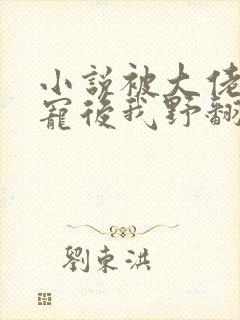 小說被大佬
寵後我野翻
劉東洪